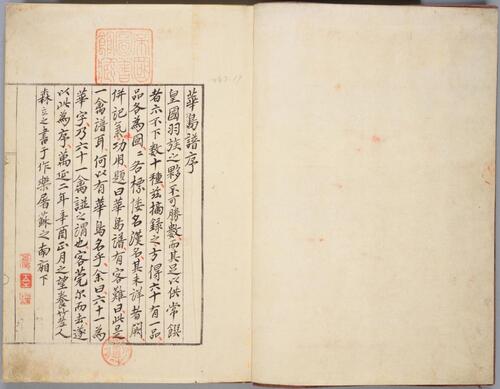 華鳥譜序
皇國羽族之夥不可勝數而其足以供常饌
者亦不下數十種茲摘錄之方得六十有一品
品各為圖〻各標倭名漢名其未詳者闕
併記氣功用題曰華鳥譜有客難曰此是
一禽譜耳何以有華鳥名乎余曰六十一為
華字乃六十一禽譜之謂也客莞尔而去遂
以此為序萬延二年辛酉正月之望養竹荃人
森立之書于作樂居蘇之南廂下
帝國圖書館藏